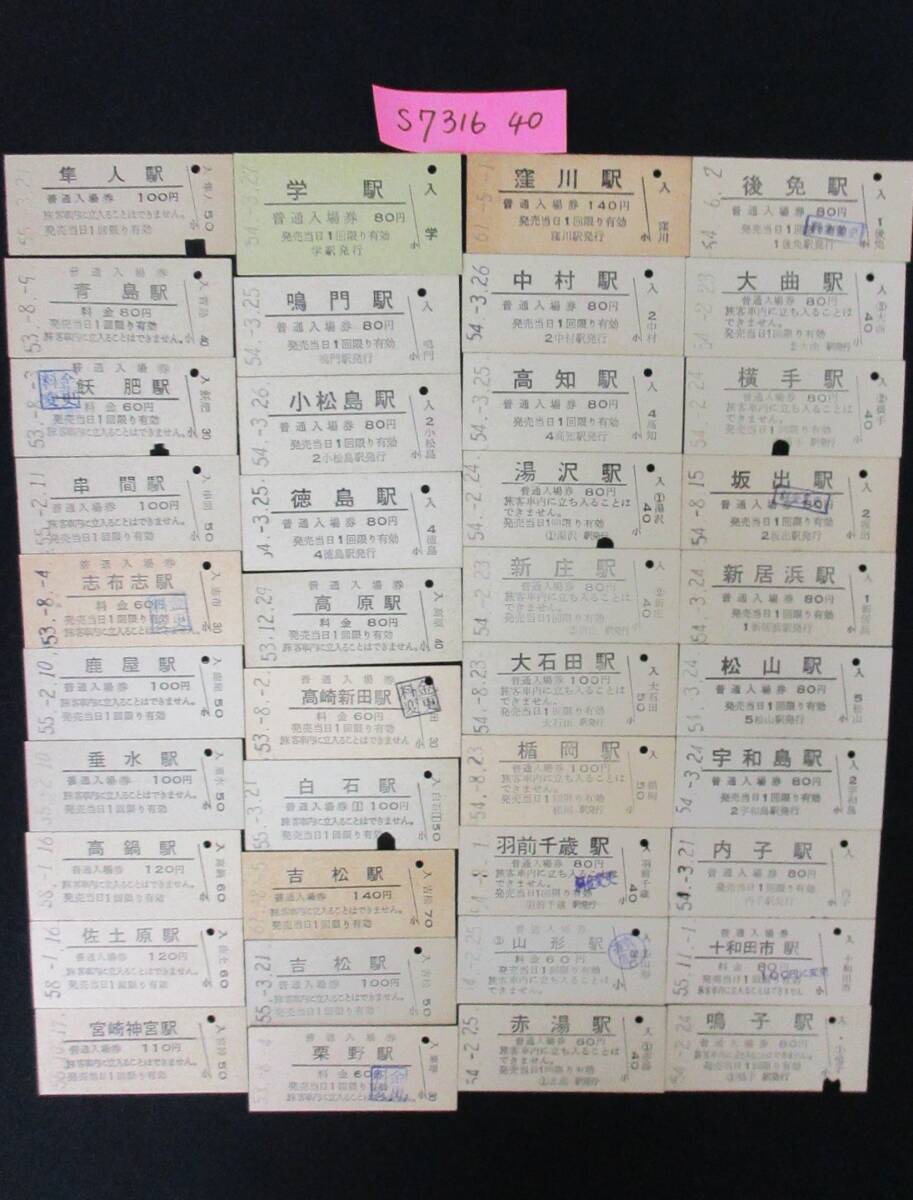 S7316 40
隼人駅
普通入場券 100円
旅客車内に立入ることはできません。
発売当日1回限り有効
普通入場券
青島駅
料金80円
発売当日1回限り有効
旅客車内に立入ることはできません。
53.-8.-9
普通入場券
飫肥駅
料金60円
発売当日1回限り有効
旅客車内に立入ることはできません。
串間駅
普通入場券 100円
旅客車内に立入ることはできません。
発売当日1回限り有効
55.-2.11
普通入場券
志布志駅
料金60円
発売当日1回限り有効
旅客車内に立入ることはできません。
53.-8.-4
鹿屋駅
普通入場券 100円
旅客車内に立入ることはできません。
発売当日1回限り有効
55.-2.10
垂水駅
普通入場券 100円
旅客車内に立入ることはできません。
発売当日1回限り有効
高鍋駅
普通入場券 120円
旅客車内に立入ることはできません。
発売当日1回限り有効
58.-1.16
佐土原駅
普通入場券 120円
旅客車内に立入ることはできません。
発売当日1回限り有効
58.-1.16
宮崎神宮駅
普通入場券 110円
旅客車内に立入ることはできません。
発売当日1回限り有効
学駅
普通入場券 80円
発売当日1回限り有効
学駅発行
鳴門駅
普通入場券 80円
発売当日1回限り有効
鳴門駅発行
54.-3.25
小松島駅
普通入場券 80円
発売当日1回限り有効
2小松島駅発行
54.-3.26
徳島駅
普通入場券 80円
発売当日1回限り有効
4徳島駅発行
54.-3.25
普通入場券
高原駅
料金80円
発売当日1回限り有効
旅客車内に立入ることはできません。
53.12.29
普通入場券
高崎新田駅
料金60円
発売当日1回限り有効
旅客車内に立入ることはできません
53.-8.-2
白石駅
普通入場券 100円
旅客車内に立入ることはできません。
発売当日1回限り有効
55.-3.21
吉松駅
普通入場券 140円
旅客車内に立入ることはできません。
発売当日1回限り有効
吉松駅
普通入場券 100円
旅客車内に立入ることはできません。
発売当日1回限り有効
55.-3.21
普通入場券
栗野駅
料金60円
発売当日1回限り有効
旅客車内に立入ることはできません。
窪川駅
普通入場券 140円
発売当日1回限り有効
窪川駅発行
61.-5.-1
中村駅
普通入場券 80円
発売当日1回限り有効
2中村駅発行
54.-3.26
高知駅
普通入場券 80円
発売当日1回限り有効
4高知駅発行
54.-3.25
湯沢駅
普通入場券 80円
旅客車内に立ち入ることは
できません。
発売当日1回限り有効
①湯沢 駅発行
54.-2.24
新庄駅
普通入場券 80円
旅客車内に立ち入ることは
できません。
発売当日1回限り有効
54.-2.23
大石田駅
普通入場券 100円
旅客車内に立ち入ることは
できません。
発売当日1回限り有効
大石田 駅発行
54.-8.23
楯岡駅
普通入場券 100円
旅客車内に立ち入ることは
できません。
発売当日1回限り有効
楯岡 駅発行
54.-8.23
羽前千歳駅
普通入場券 80円
旅客車内に立ち入ることは
できません。
発売当日1回限り有効
羽前千歳 駅発行
普通入場券
山形駅
料金60円
発売当日1回限り有効
旅客車内に立ち入ることはできません。
赤湯駅
普通入場券 80円
旅客車内に立ち入ることは
できません。
発売当日1回限り有効
①赤湯 駅発行
54.-2.25
後免駅
普通入場券 80円
発売当日1回限り有効
1後免駅発行
大曲駅
普通入場券 80円
旅客車内に立ち入ることは
できません。
発売当日1回限り有効
54.-2.23
横手駅
普通入場券 80円
旅客車内に立ち入ることは
できません。
発売当日1回限り有効
54.-2.24
坂出駅
普通入場券 80円
発売当日1回限り有効
2坂出駅発行
54.-8.15
新居浜駅
普通入場券 80円
発売当日1回限り有効
1新居浜駅発行
54.-3.24
松山駅
普通入場券 80円
発売当日1回限り有効
5松山駅発行
宇和島駅
普通入場券 80円
発売当日1回限り有効
2宇和島駅発行
54.-3.24
内子駅
普通入場券 80円
発売当日1回限り有効
内子駅発行
54.-3.21
普通入場券
十和田市駅
料金 80円
100円に変更
発売当日1回限り有効
旅客車内に立入ることはできません
55.11.-1
鳴子駅
普通入場券 80円
旅客車内に立ち入ることは
できません。
発売当日1回限り有効
54.-2.24